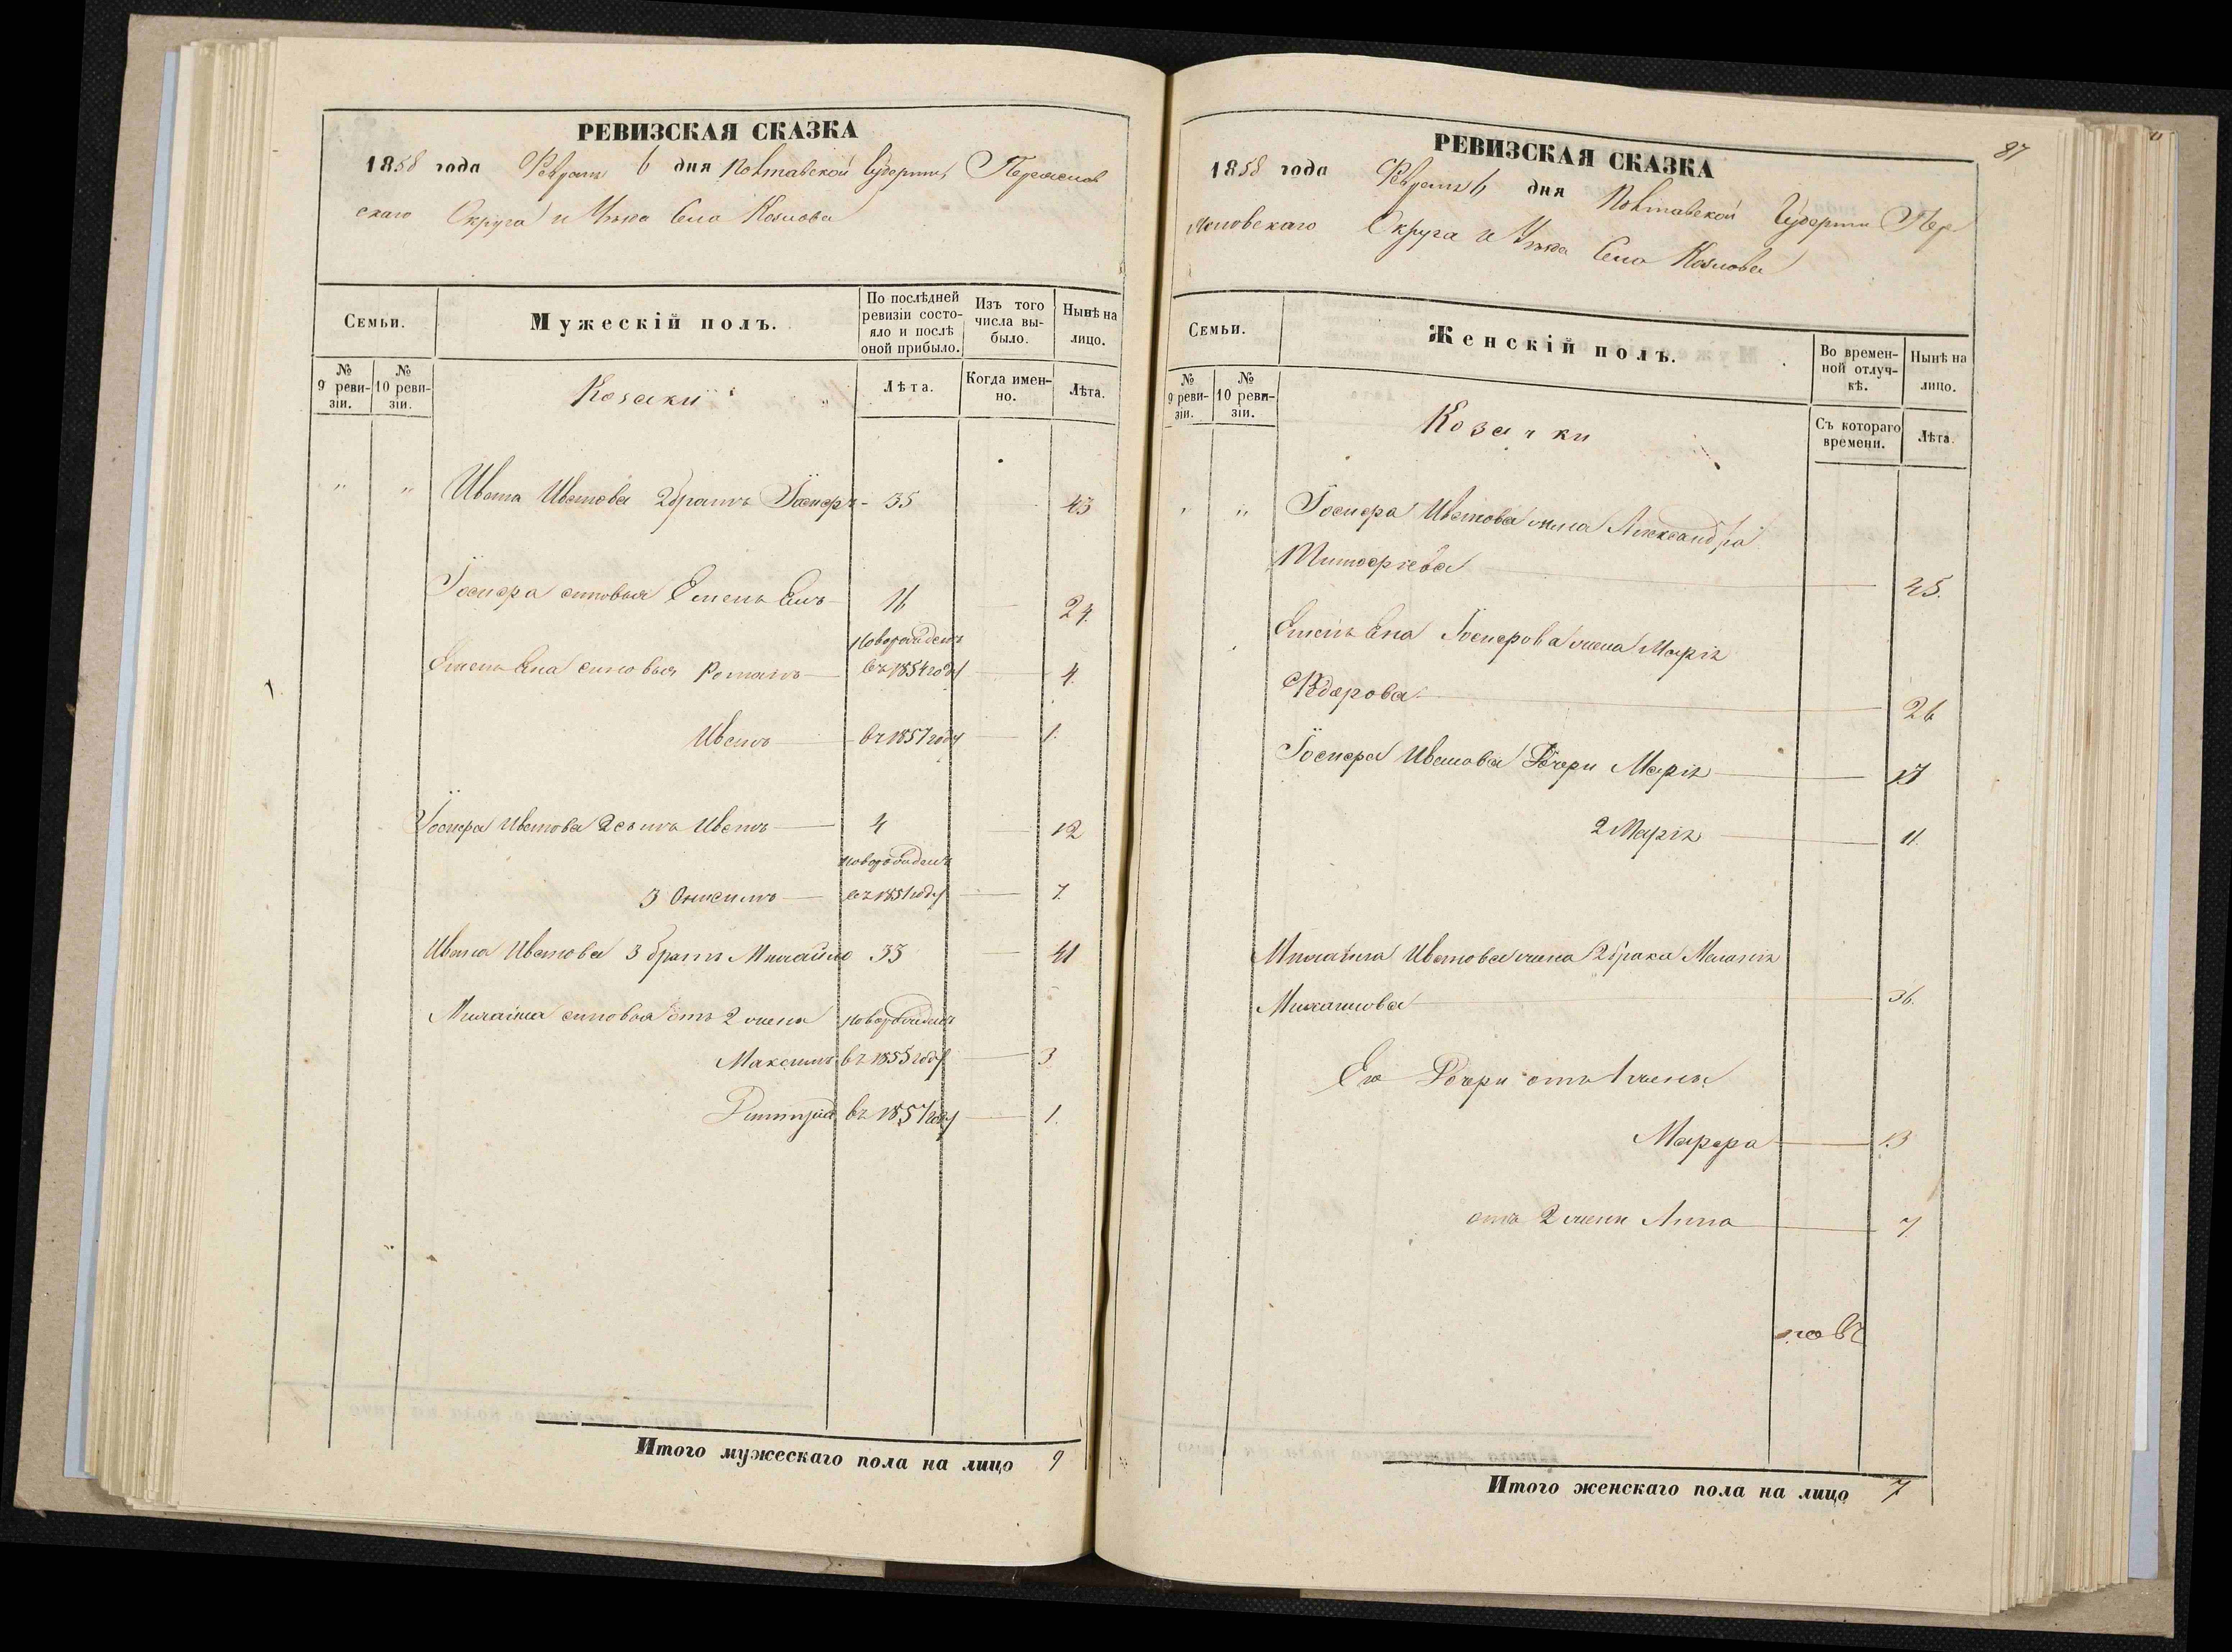 РЕВИЗСКАЯ СКАЗКА
1858 года Февраля 6 дня Полтавской Губерніи Переяслов
скаго Округа и Уѣзда Села Козлова
Семьи.
Мужескій полъ.
По послѣдней ревизіи состояло и послѣ оной прибыло.
Изъ того числа выбыло.
Нынѣ на лицо.
№ 9 ревизіи.
№ 10 ревизіи.
Козаки
Лѣта.
Когда именно.
Лѣта.
" " Ивана Иванова 2 братъ 35 43
сыновья Емельянъ 16 24
новорожденъ
Емельяна сыновья Романъ въ 1854 году 4
Иванъ въ 1857 году 1.
Иванова 2 сынъ Иванъ 4 12
новорожденъ
3 Онисимъ въ 1851 году 7.
Ивана Иванова 3 братъ Михайло 33 41
Михайла сыновья отъ 2 жены новорожденъ
Максимъ въ 1855 году 3
Дмитрій въ 1857 году 1.
Итого мужескаго пола на лицо 9
87
РЕВИЗСКАЯ СКАЗКА
1858 года Февраля 6 дня Полтавской Губерніи Пер
яславскаго Округа и Уѣзда Села Козлова
Семьи.
Женскій полъ.
Во временной отлучкѣ.
Нынѣ на лицо.
№ 9 ревизіи.
№ 10 ревизіи.
Козачки
Съ котораго времени.
Лѣта.
" " Иванова жена Александра
Тимофеева 45.
Емельяна жена Марія
Федорова 26
Иванова дочери Марія 17
2 Марія 11.
Михайла Иванова жена 2 брака Меланія
Михайлова 36.
Его дочери отъ 1 жены
Марфа 13
отъ 2 жены Анна 7.
Итого женскаго пола на лицо 7